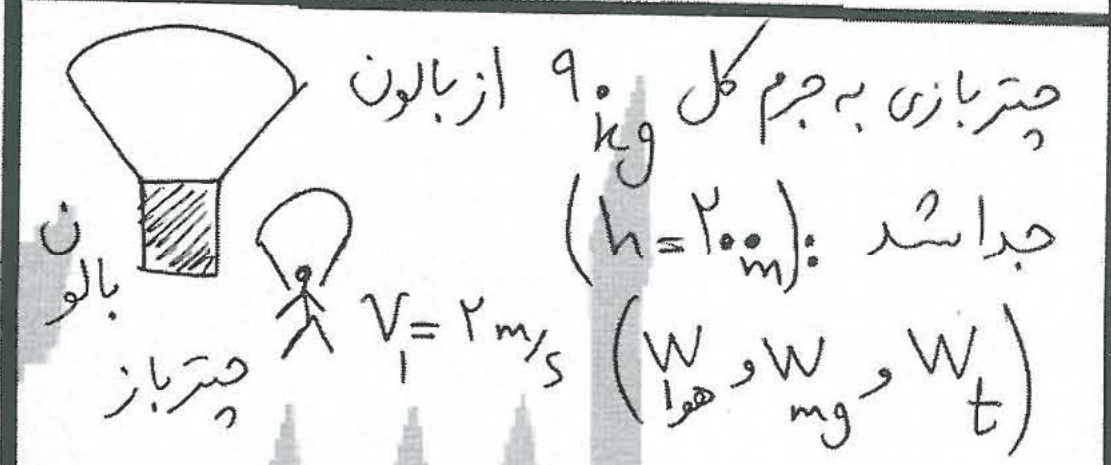 چتربازی به جرم کل ۹۰ kg از بالون
جدا شد :(h = ۲۰۰ m)
بالون
چترباز
V₁ = ۲ m/s
(W_t و W_mg و W_هوا)